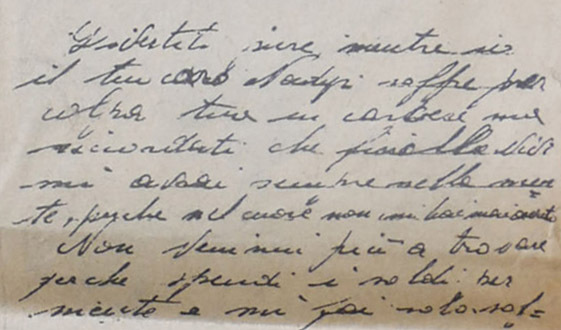 Divertiti pure mentre io
il tuo caro soffre per
colpa tua in carcere ma
ricordati che vivi
mi avrai sempre nella men
te, perche nel cuore non mi hai mai avuto
Non venirmi più a trovare
perche spendi i soldi per
niente e mi fai solo sol=